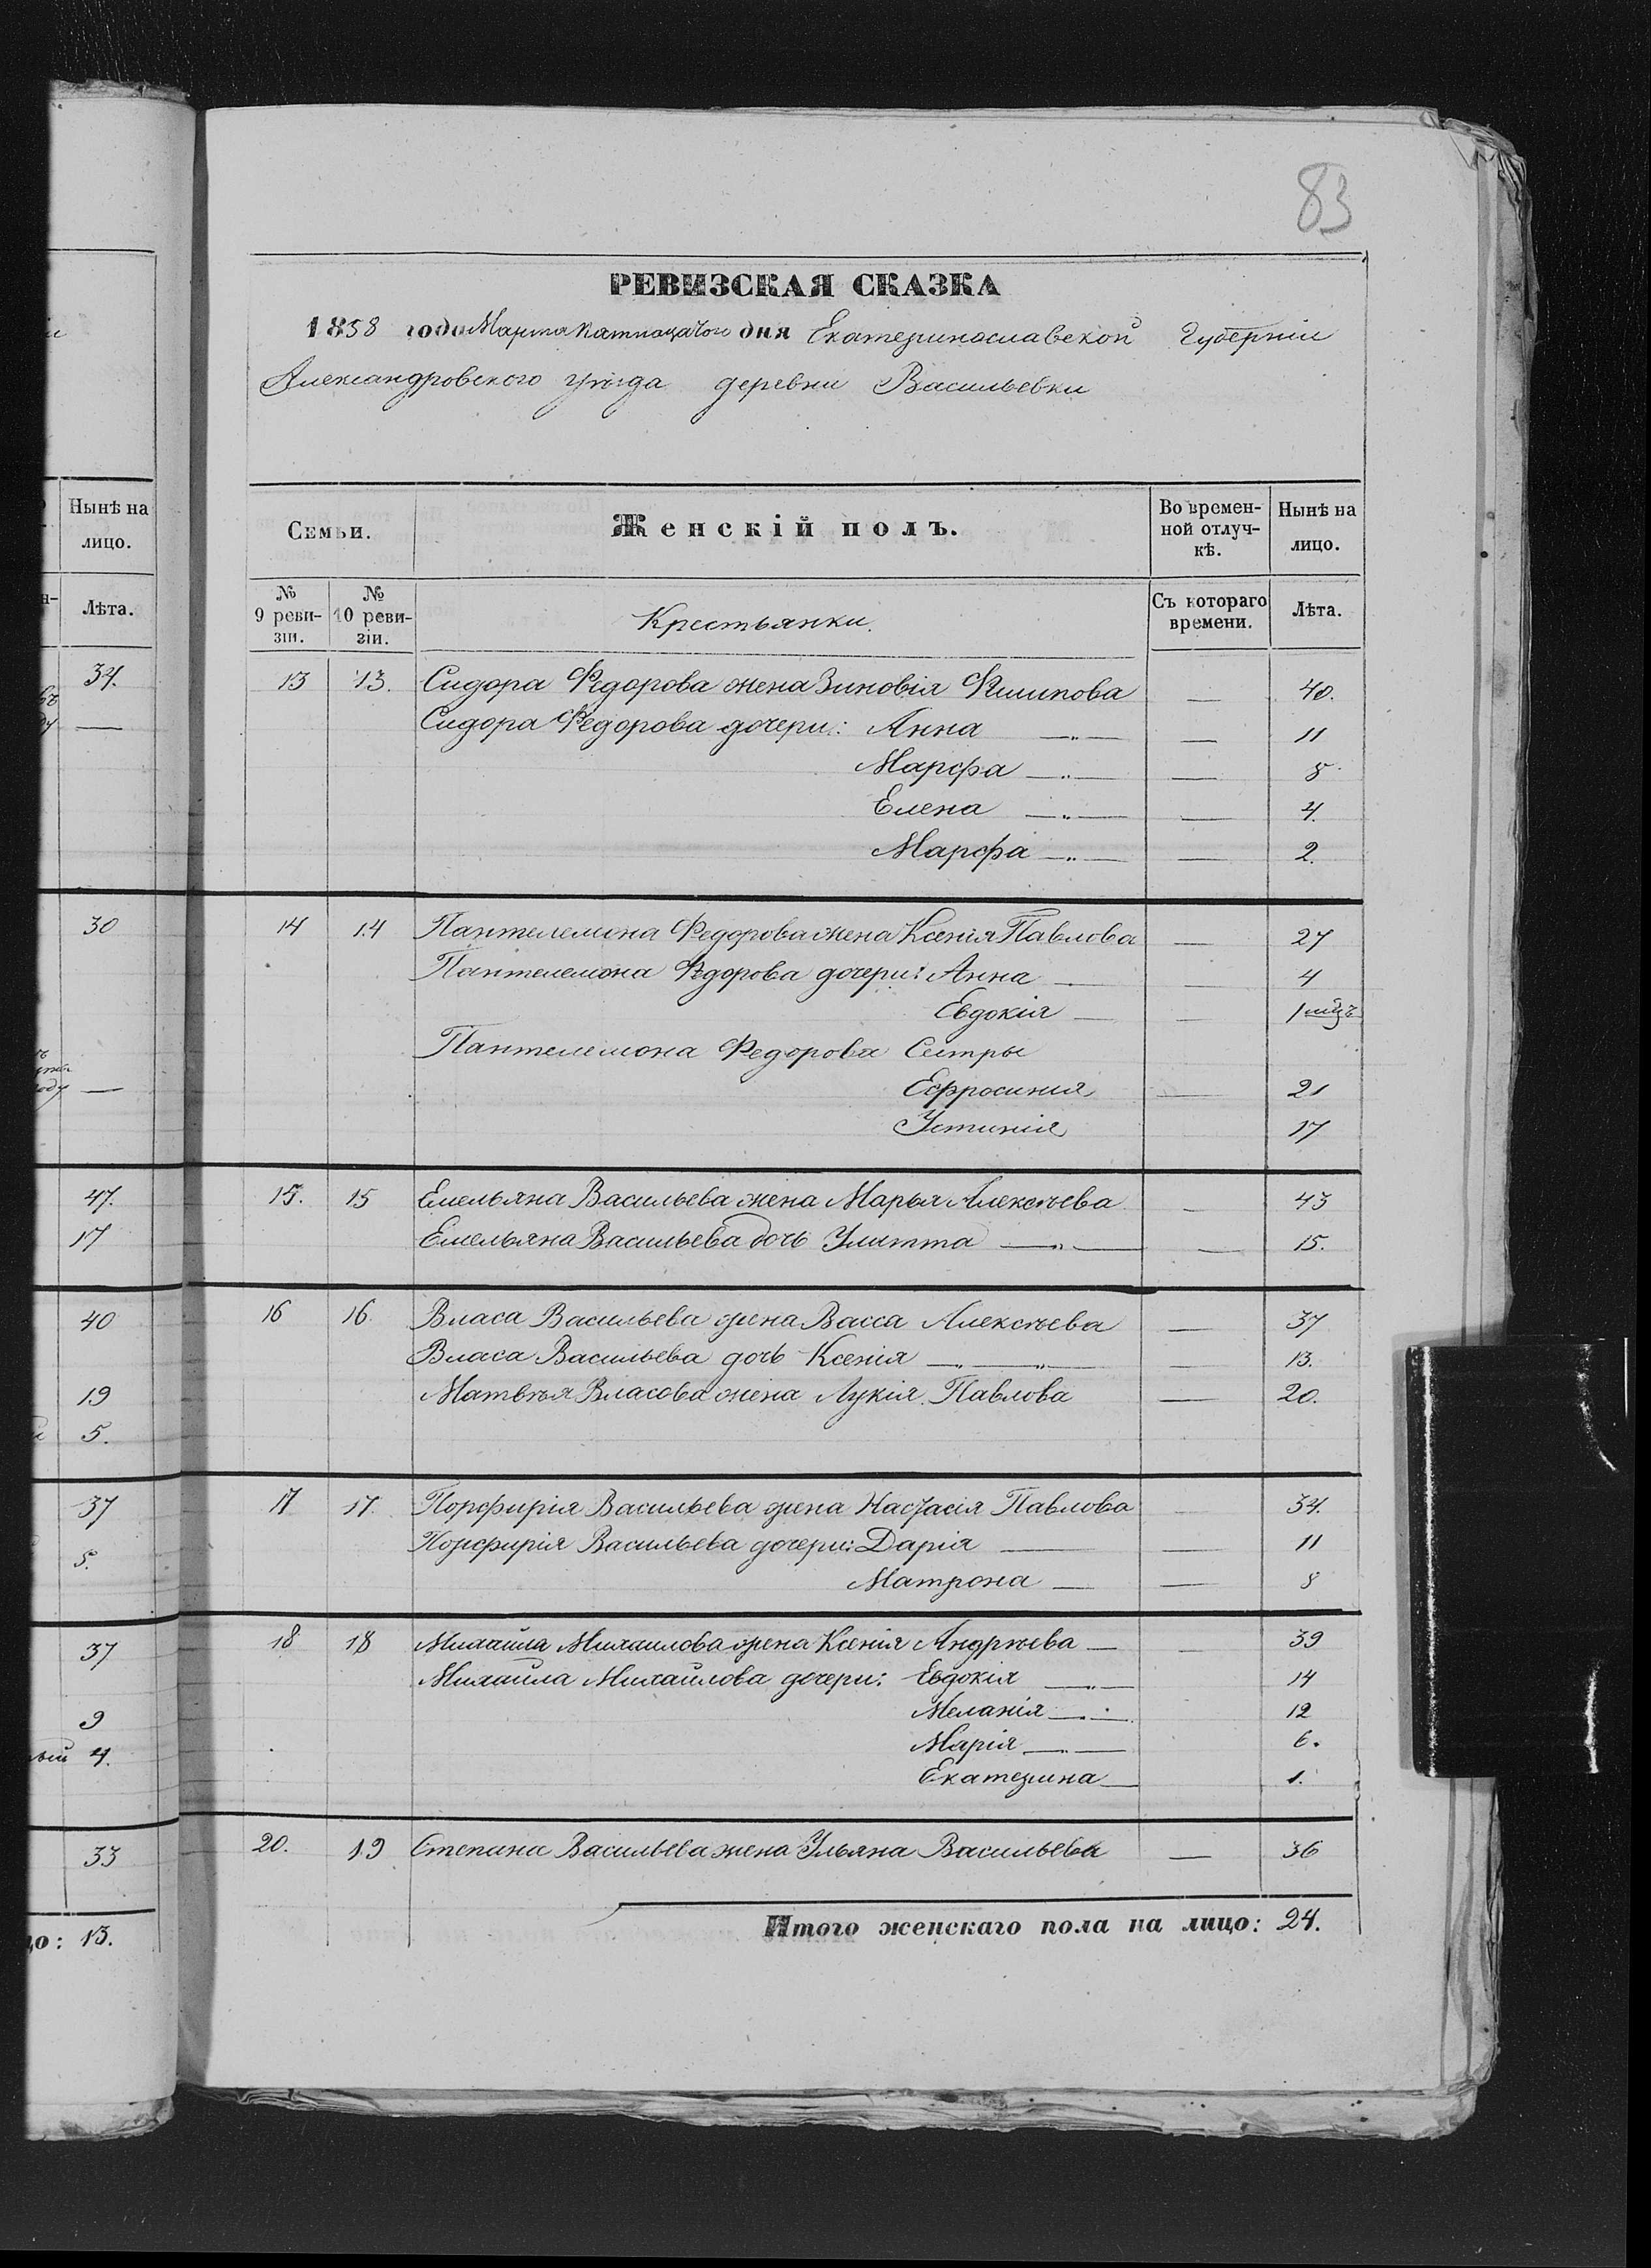 83
РЕВИЗСКАЯ СКАЗКА
1858 года Марта пятнацатого дня Екатеринославской Губерніи
Александровского уѣзда деревни Васильевки
Нынѣ на лицо.
Лѣта.
34.
30
47.
17
40
19
5.
37
5.
37
9
4.
33
13.
Семьи. Женскій полъ. Во времен- Нынѣ на
ной отлуч- лицо.
кѣ.
№ № Крестьянки. Съ котораго Лѣта.
9 реви- 10 реви- времени.
зіи. зіи.
13 13. Сидора Федорова жена Зиновія Филипова — 40.
Сидора Федорова дочери: Анна —„— — 11
Марфа —„— — 8
Елена —„— — 4.
Марфа —„— — 2.
14 14 Пантелемона Федорова жена Ксенія Павлова — 27
Пантелемона Федорова дочери: Анна — — 4
Евдокія — — 1 мцъ
Пантелемона Федорова Сестры
Ефросинія — 21
Устинія 17
15. 15 Емельяна Васильева жена Марья Алексѣева — 43
Емельяна Васильева дочь Улитта —„— — 15.
16 16. Власа Васильева жена Васса Алексѣева — 37
Власа Васильева дочь Ксенія —„—„— — 13.
Матвѣя Власова жена Лукія Павлова — 20.
17 17. Порфирія Васильева жена Настасія Павлова — 34.
Порфирія Васильева дочери: Дарія — — 11
Матрона — — 8
18 18 Михаила Михаилова жена Ксенія Андрѣева — — 39
Михайла Михайлова дочери: Евдокія —„— 14
Меланія —„— 12
Марія —„— 6.
Екатерина — 1.
20. 19 Степана Васильева жена Ульяна Васильева — 36
Итого женскаго пола на лицо: 24.